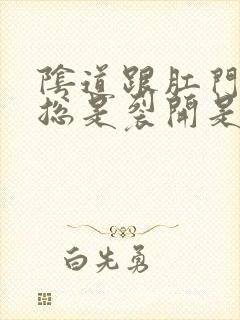 陰道跟肛門
總是裂開是
白先勇